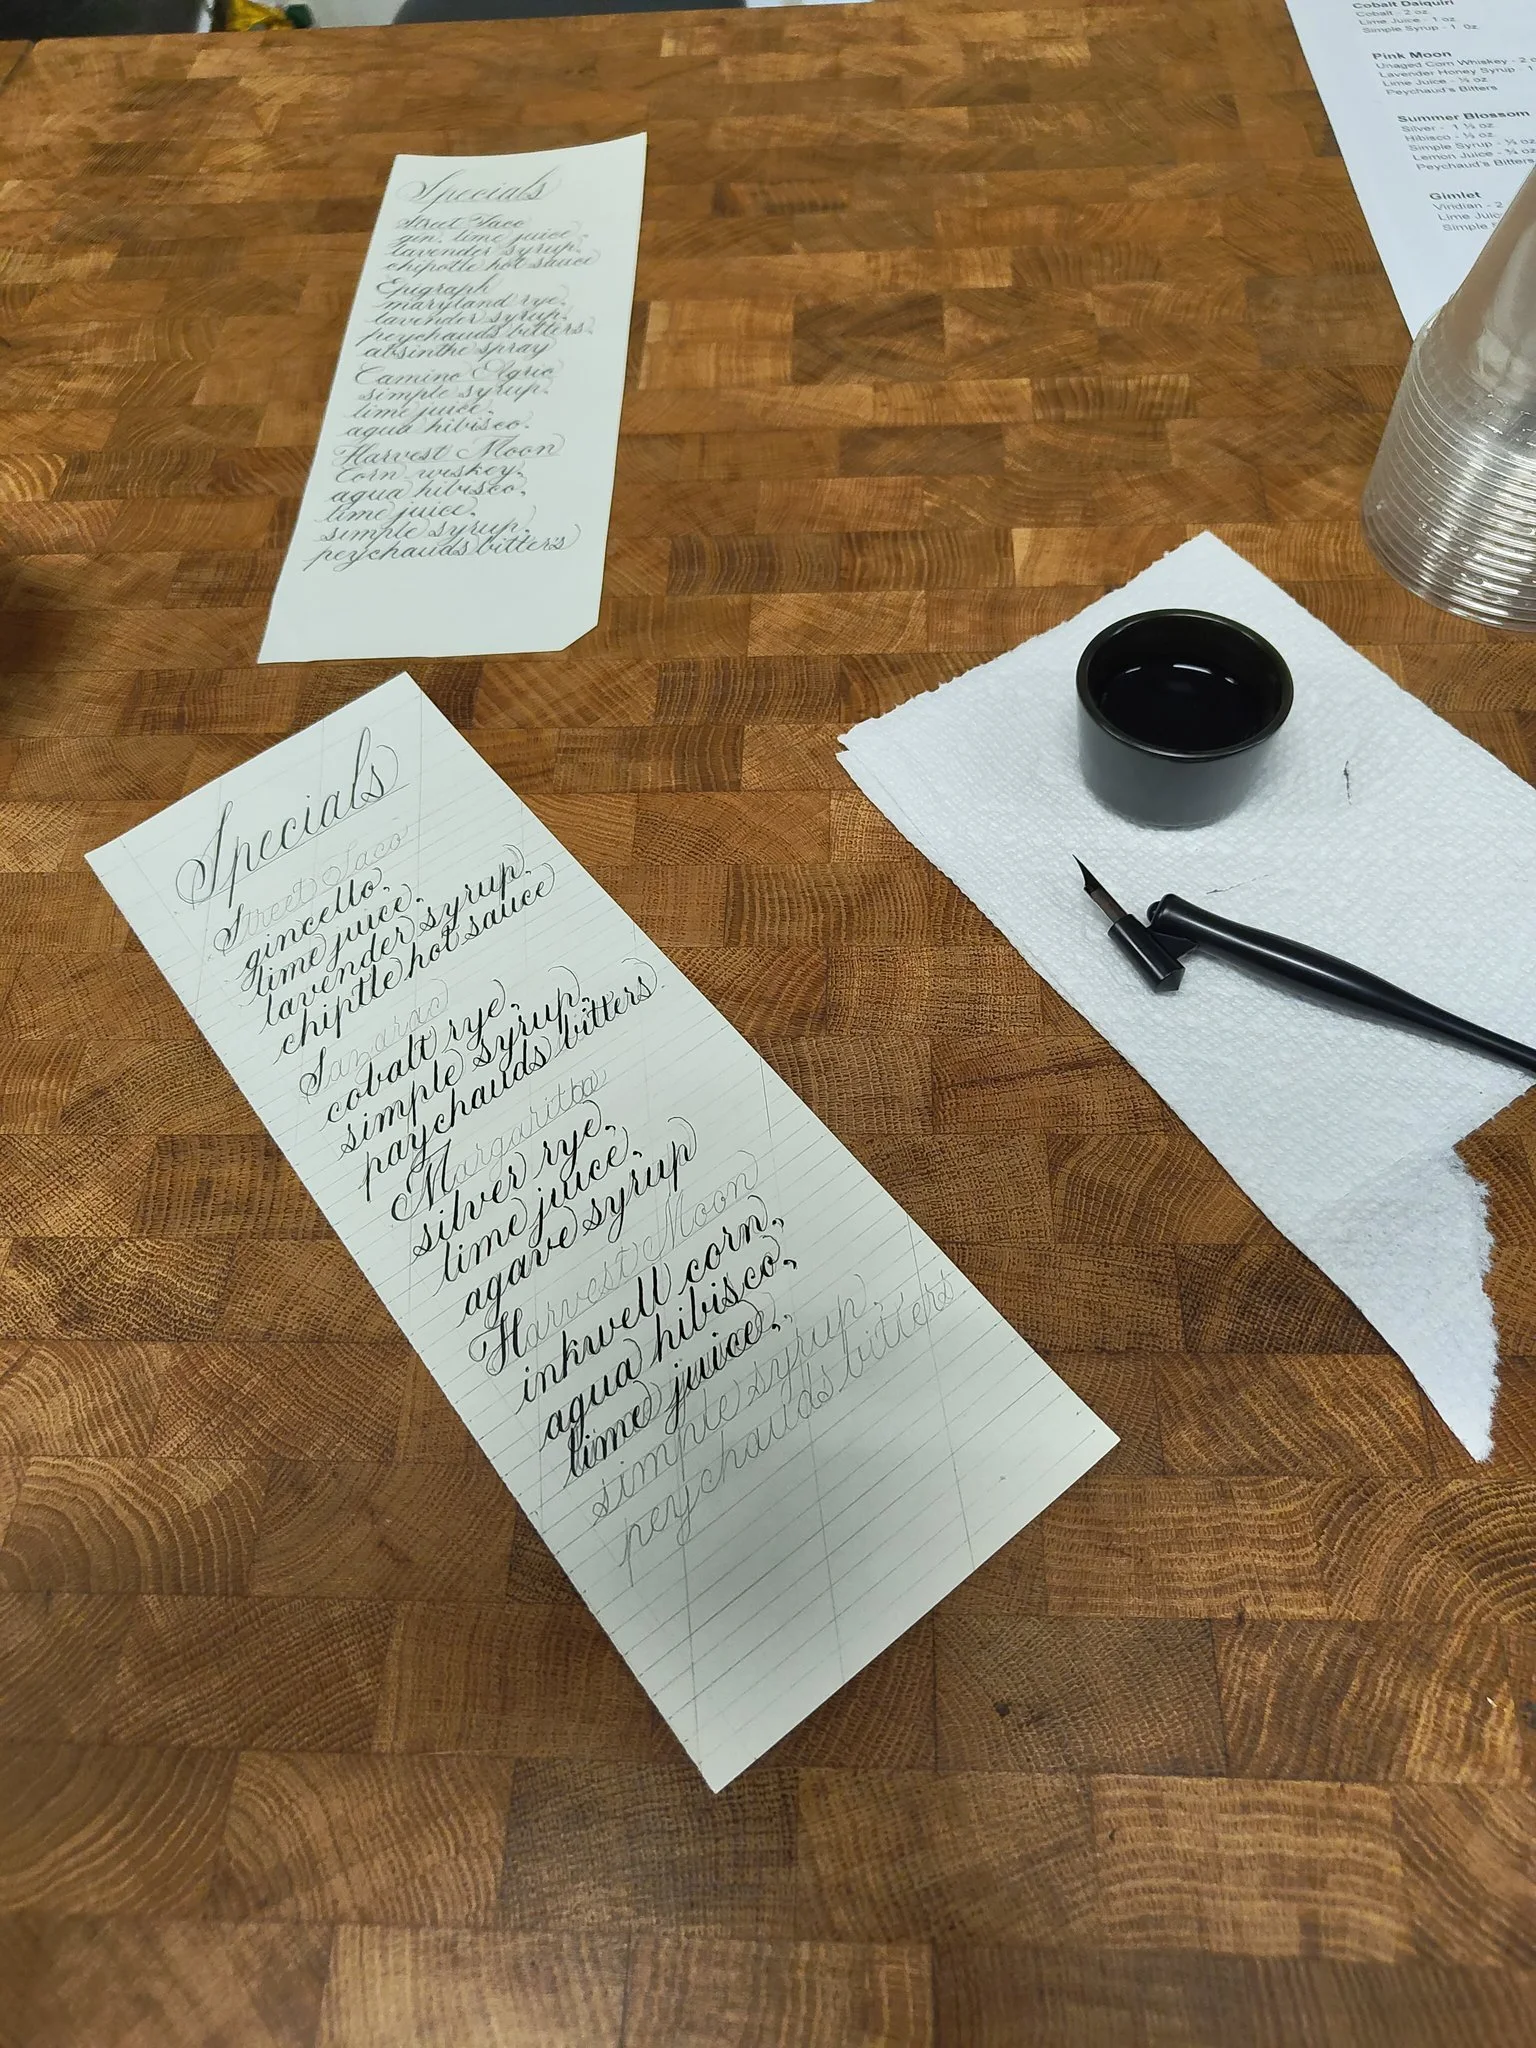 Specials
Street Taco
gin, lime juice,
lavender syrup,
chipotle hot sauce
Epigraph
maryland rye,
lavender syrup,
peychauds bitters,
absinthe spray
Camino Agrio
simple syrup,
lime juice,
agua hibisco,
Harvest Moon
Corn wiskey,
agua hibisco,
lime juice,
simple syrup,
peychauds bitters
Cobalt Daiquiri
Cobalt - 2 oz
Lime Juice - 1 oz
Simple Syrup - 1 oz
Pink Moon
Unaged Corn Whiskey - 2 o
Lavender Honey Syrup - 1
Lime Juice - ½ oz
Peychaud's Bitters
Summer Blossom
Silver - 1 ½ oz
Hibisco - ½ oz
Simple Syrup - ¾ oz
Lemon Juice - ¾ oz
Peychaud's Bitters
Gimlet
Viridian - 2
Lime Juic
Simple
Specials
Street Taco
gincello,
lime juice,
lavender syrup,
chiptle hot sauce
Sazarac
cobalt rye,
simple syrup,
paychauds bitters
Margarita
silver rye,
lime juice,
agave syrup
Harvest Moon
inkwell corn,
agua hibisco,
lime juice,
simple syrup,
peychauds bitters